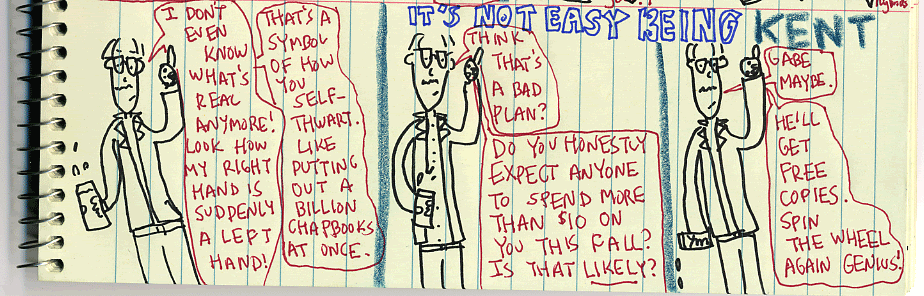 IT'S NOT EASY BEING KENT
I DON'T
EVEN
KNOW
WHAT'S
REAL
ANYMORE!
LOOK HOW
MY RIGHT
HAND IS
SUDDENLY
A LEFT
HAND!
THAT'S A
SYMBOL
OF HOW
YOU
SELF-
THWART.
LIKE
PUTTING
OUT A
BILLION
CHAPBOOKS
AT ONCE.
THINK
THAT'S
A BAD
PLAN?
DO YOU HONESTLY
EXPECT ANYONE
TO SPEND MORE
THAN $10 ON
YOU THIS FALL?
IS THAT LIKELY?
GABE
MAYBE.
HE'LL
GET
FREE
COPIES.
SPIN
THE WHEEL
AGAIN GENIUS!